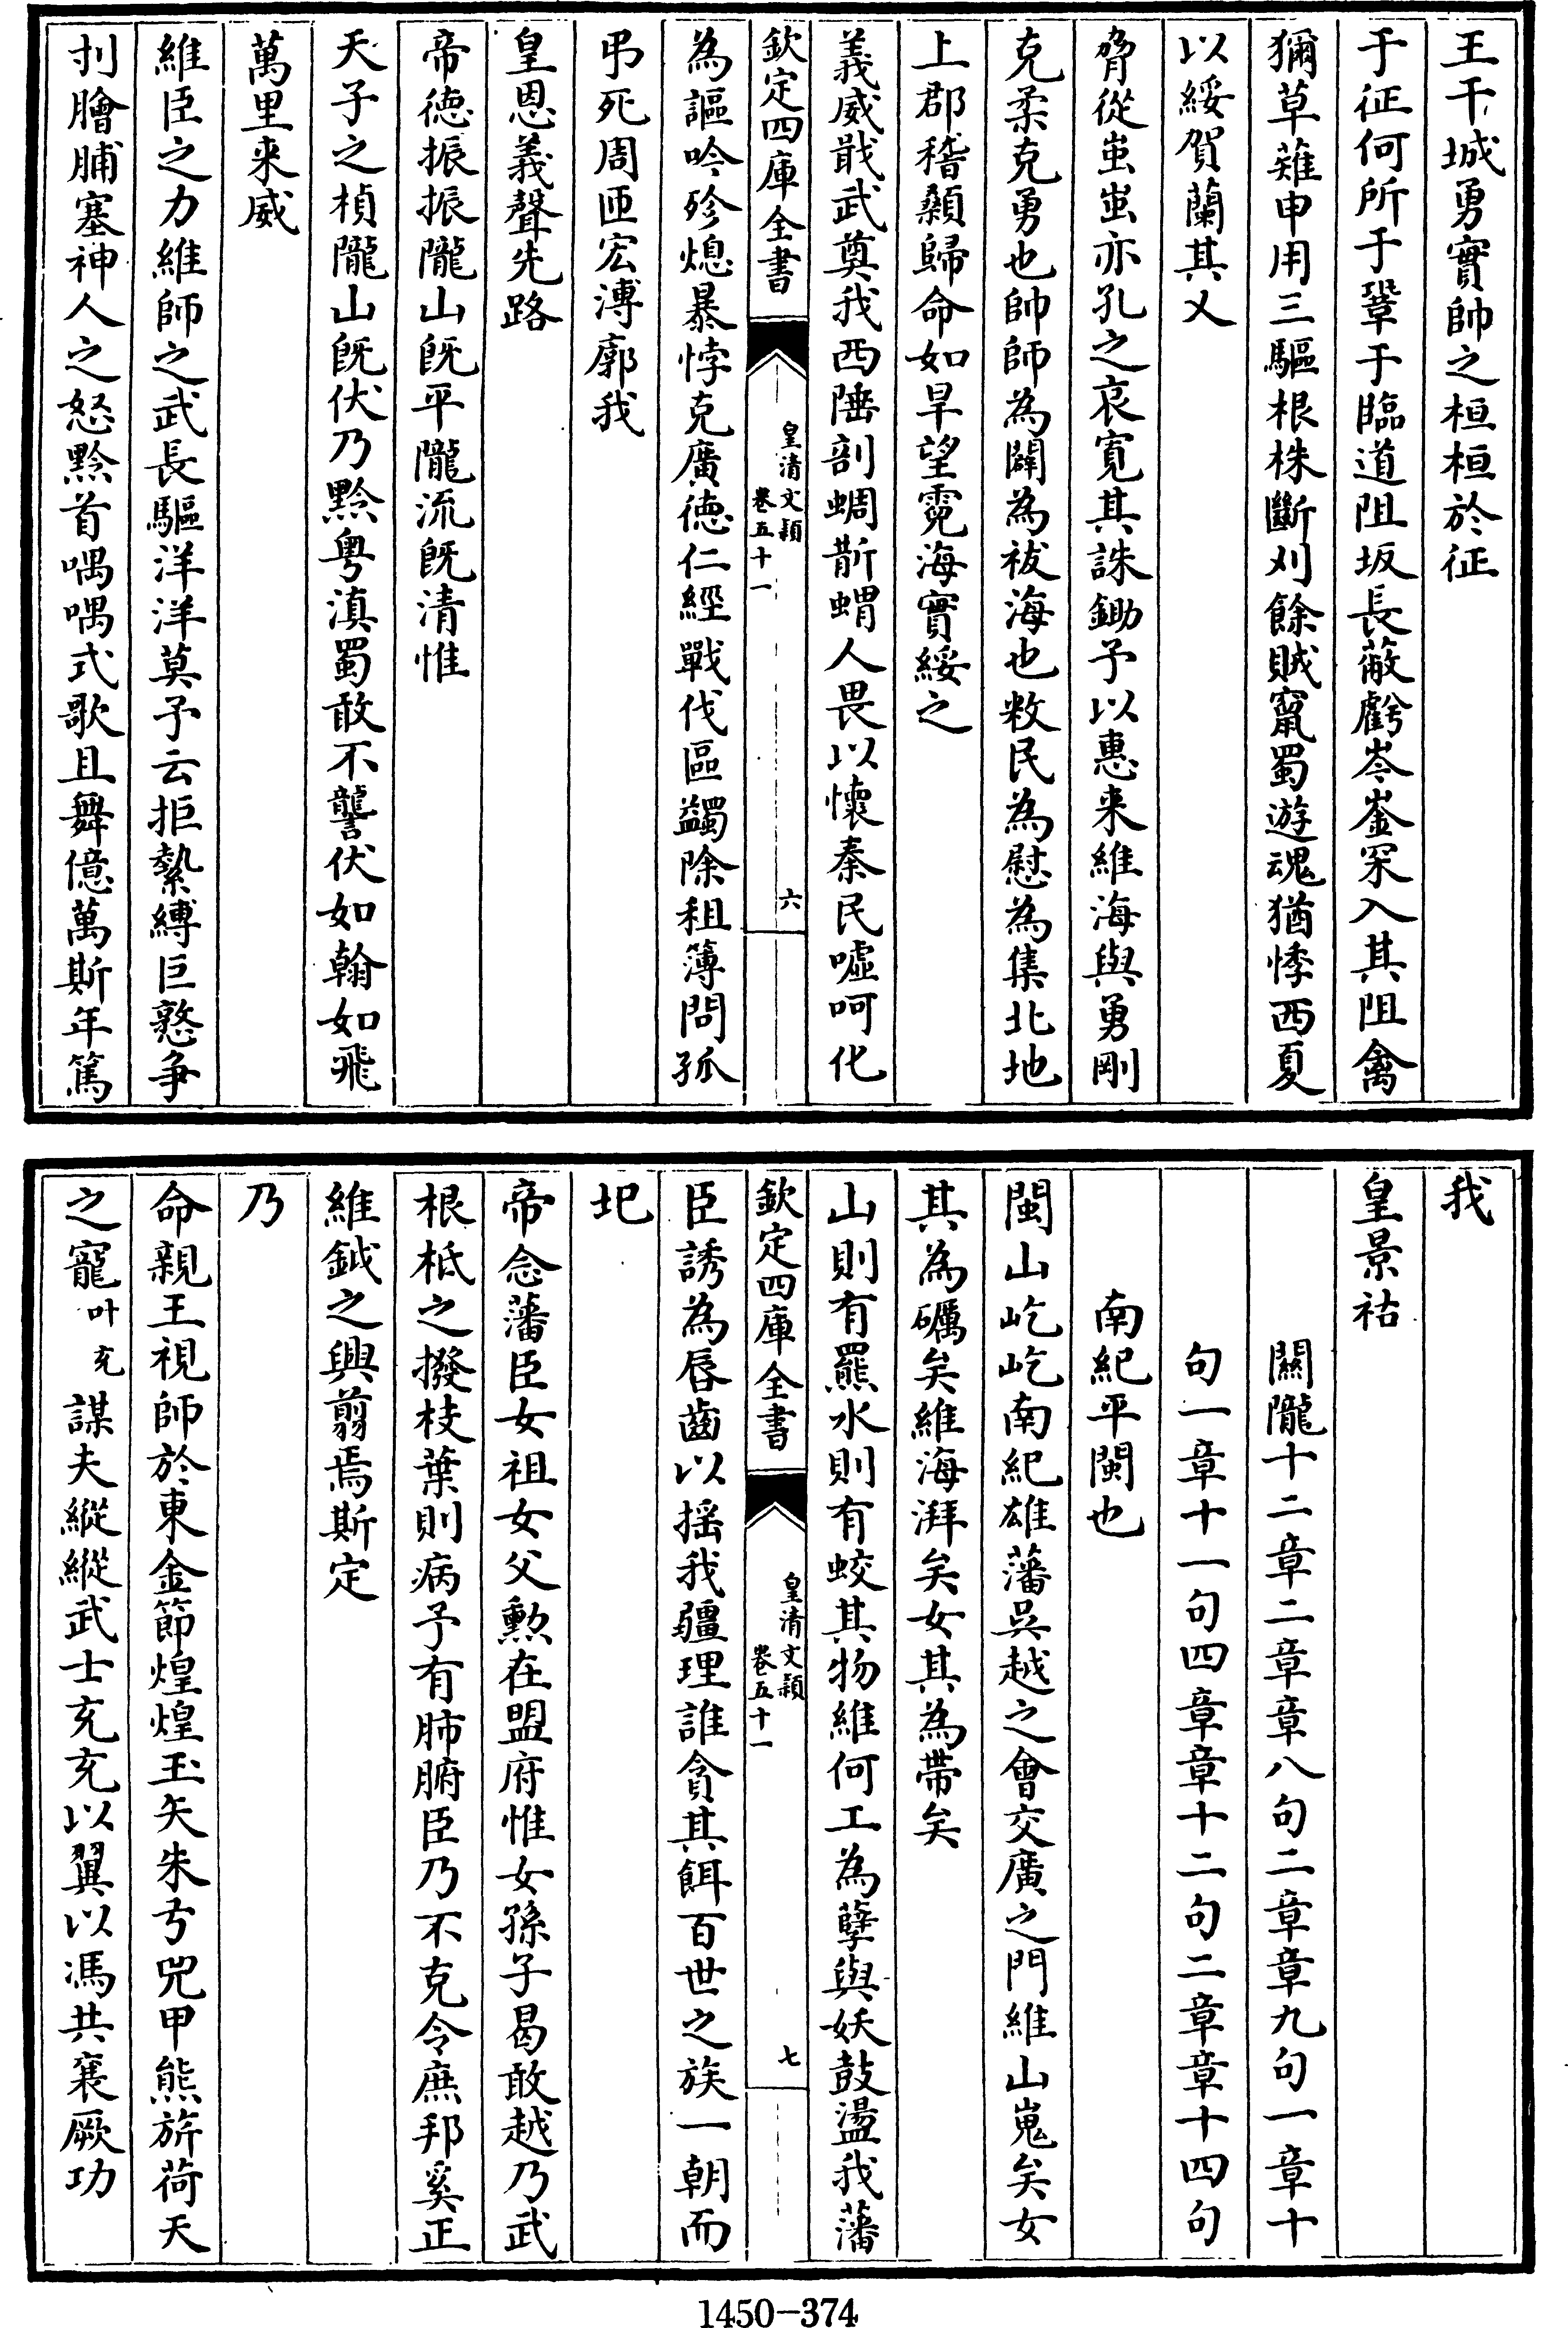 王干城勇實帥之桓桓於征
于征何所于鞏于臨道阻坂長蔽虧岑崟罙入其阻禽
獮草薙申用三驅根株斷刈餘賊竄蜀遊魂猶悸西夏
以綏賀蘭其乂
脅從蚩蚩亦孔之哀寛其誅鋤予以惠来維海與勇剛
克柔克勇也帥師為闢為祓海也敉民為慰為集北地
上郡稽顙歸命如旱望霓海實綏之
義威戢武奠我西陲剖蜩斮蝟人畏以懷秦民噓呵化
欽定四庫全書
皇清文穎
卷五十一
六
為謳吟殄熄暴悖克廣徳仁經戰伐區蠲除租簿問孤
弔死周匝宏溥廓我
皇恩義聲先路
帝徳振振隴山既平隴流既清惟
天子之楨隴山既伏乃黔粤滇蜀敢不讋伏如翰如飛
萬里来威
維臣之力維師之武長驅洋洋莫予云拒縶縛巨憝争
刌膾脯塞神人之怒黔首喁喁式歌且舞億萬斯年篤
我
皇景祜
闗隴十二章二章章八句二章章九句一章十
句一章十一句四章章十二句二章章十四句
南紀平閩也
閩山屹屹南紀雄藩吳越之會交廣之門維山嵬矣女
其為礪矣維海湃矣女其為帶矣
山則有羆水則有蛟其物維何工為孽與妖鼓盪我藩
欽定四庫全書
皇清文穎
卷五十一
七
臣誘為唇齒以揺我疆理誰貪其餌百世之族一朝而
圮
帝念藩臣女祖女父勲在盟府惟女孫子曷敢越乃武
根柢之撥枝葉則病予有肺腑臣乃不克令庶邦奚正
維鉞之興翦焉斯定
乃
命親王視師於東金節煌煌玉矢朱弓兕甲熊旂荷天
之寵叶充謀夫縱縱武士充充以翼以馮共襄厥功
1450-374